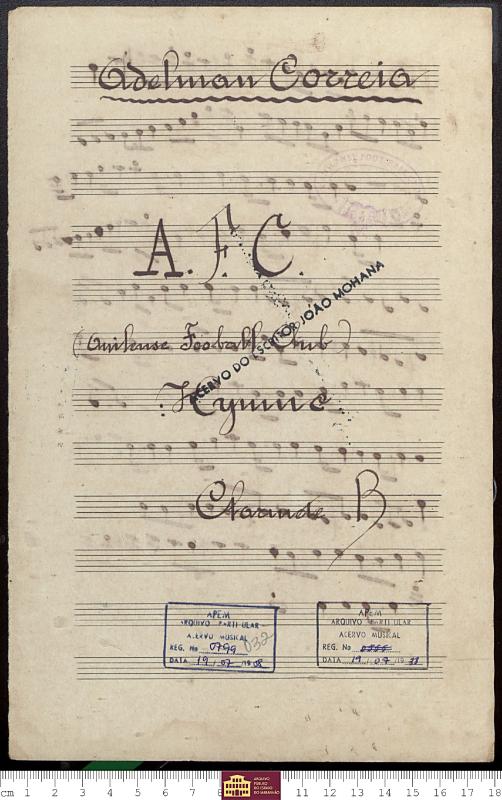 Adelman Correia
A. F. C.
(Anilense Football Club)
Hymno
ACERVO DO ESCRITOR JOÃO MOHANA
B
APEM
ARQUIVO PARTICULAR
ACERVO MUSICAL
REG. No 0799
DATA 19/07/19
032
APEM
ARQUIVO PARTICULAR
ACERVO MUSICAL
REG. No
DATA 19/07/19
cm 1 2 3 4 5 6 7 8 11 12 13 14 15 16 17 18
ARQUIVO PÚBLICO DO ESTADO DO MARANHÃO